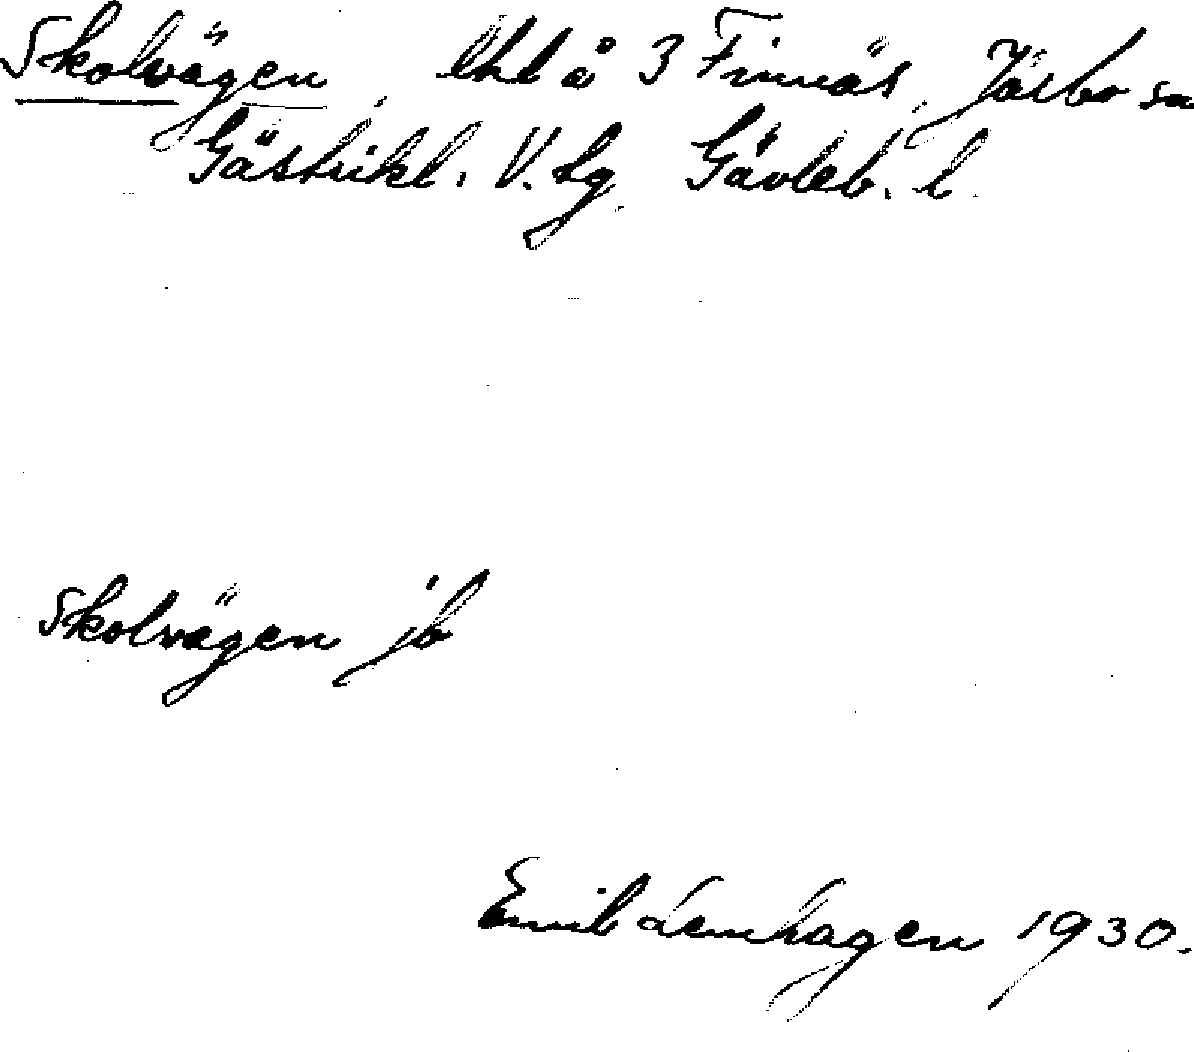 Skolvägen, lht å 3 Finnäs, Järbo sn
Gästrikl. V. tg Gävleb. l.
Skolvägen jb
Emil Lenhagen 1930.